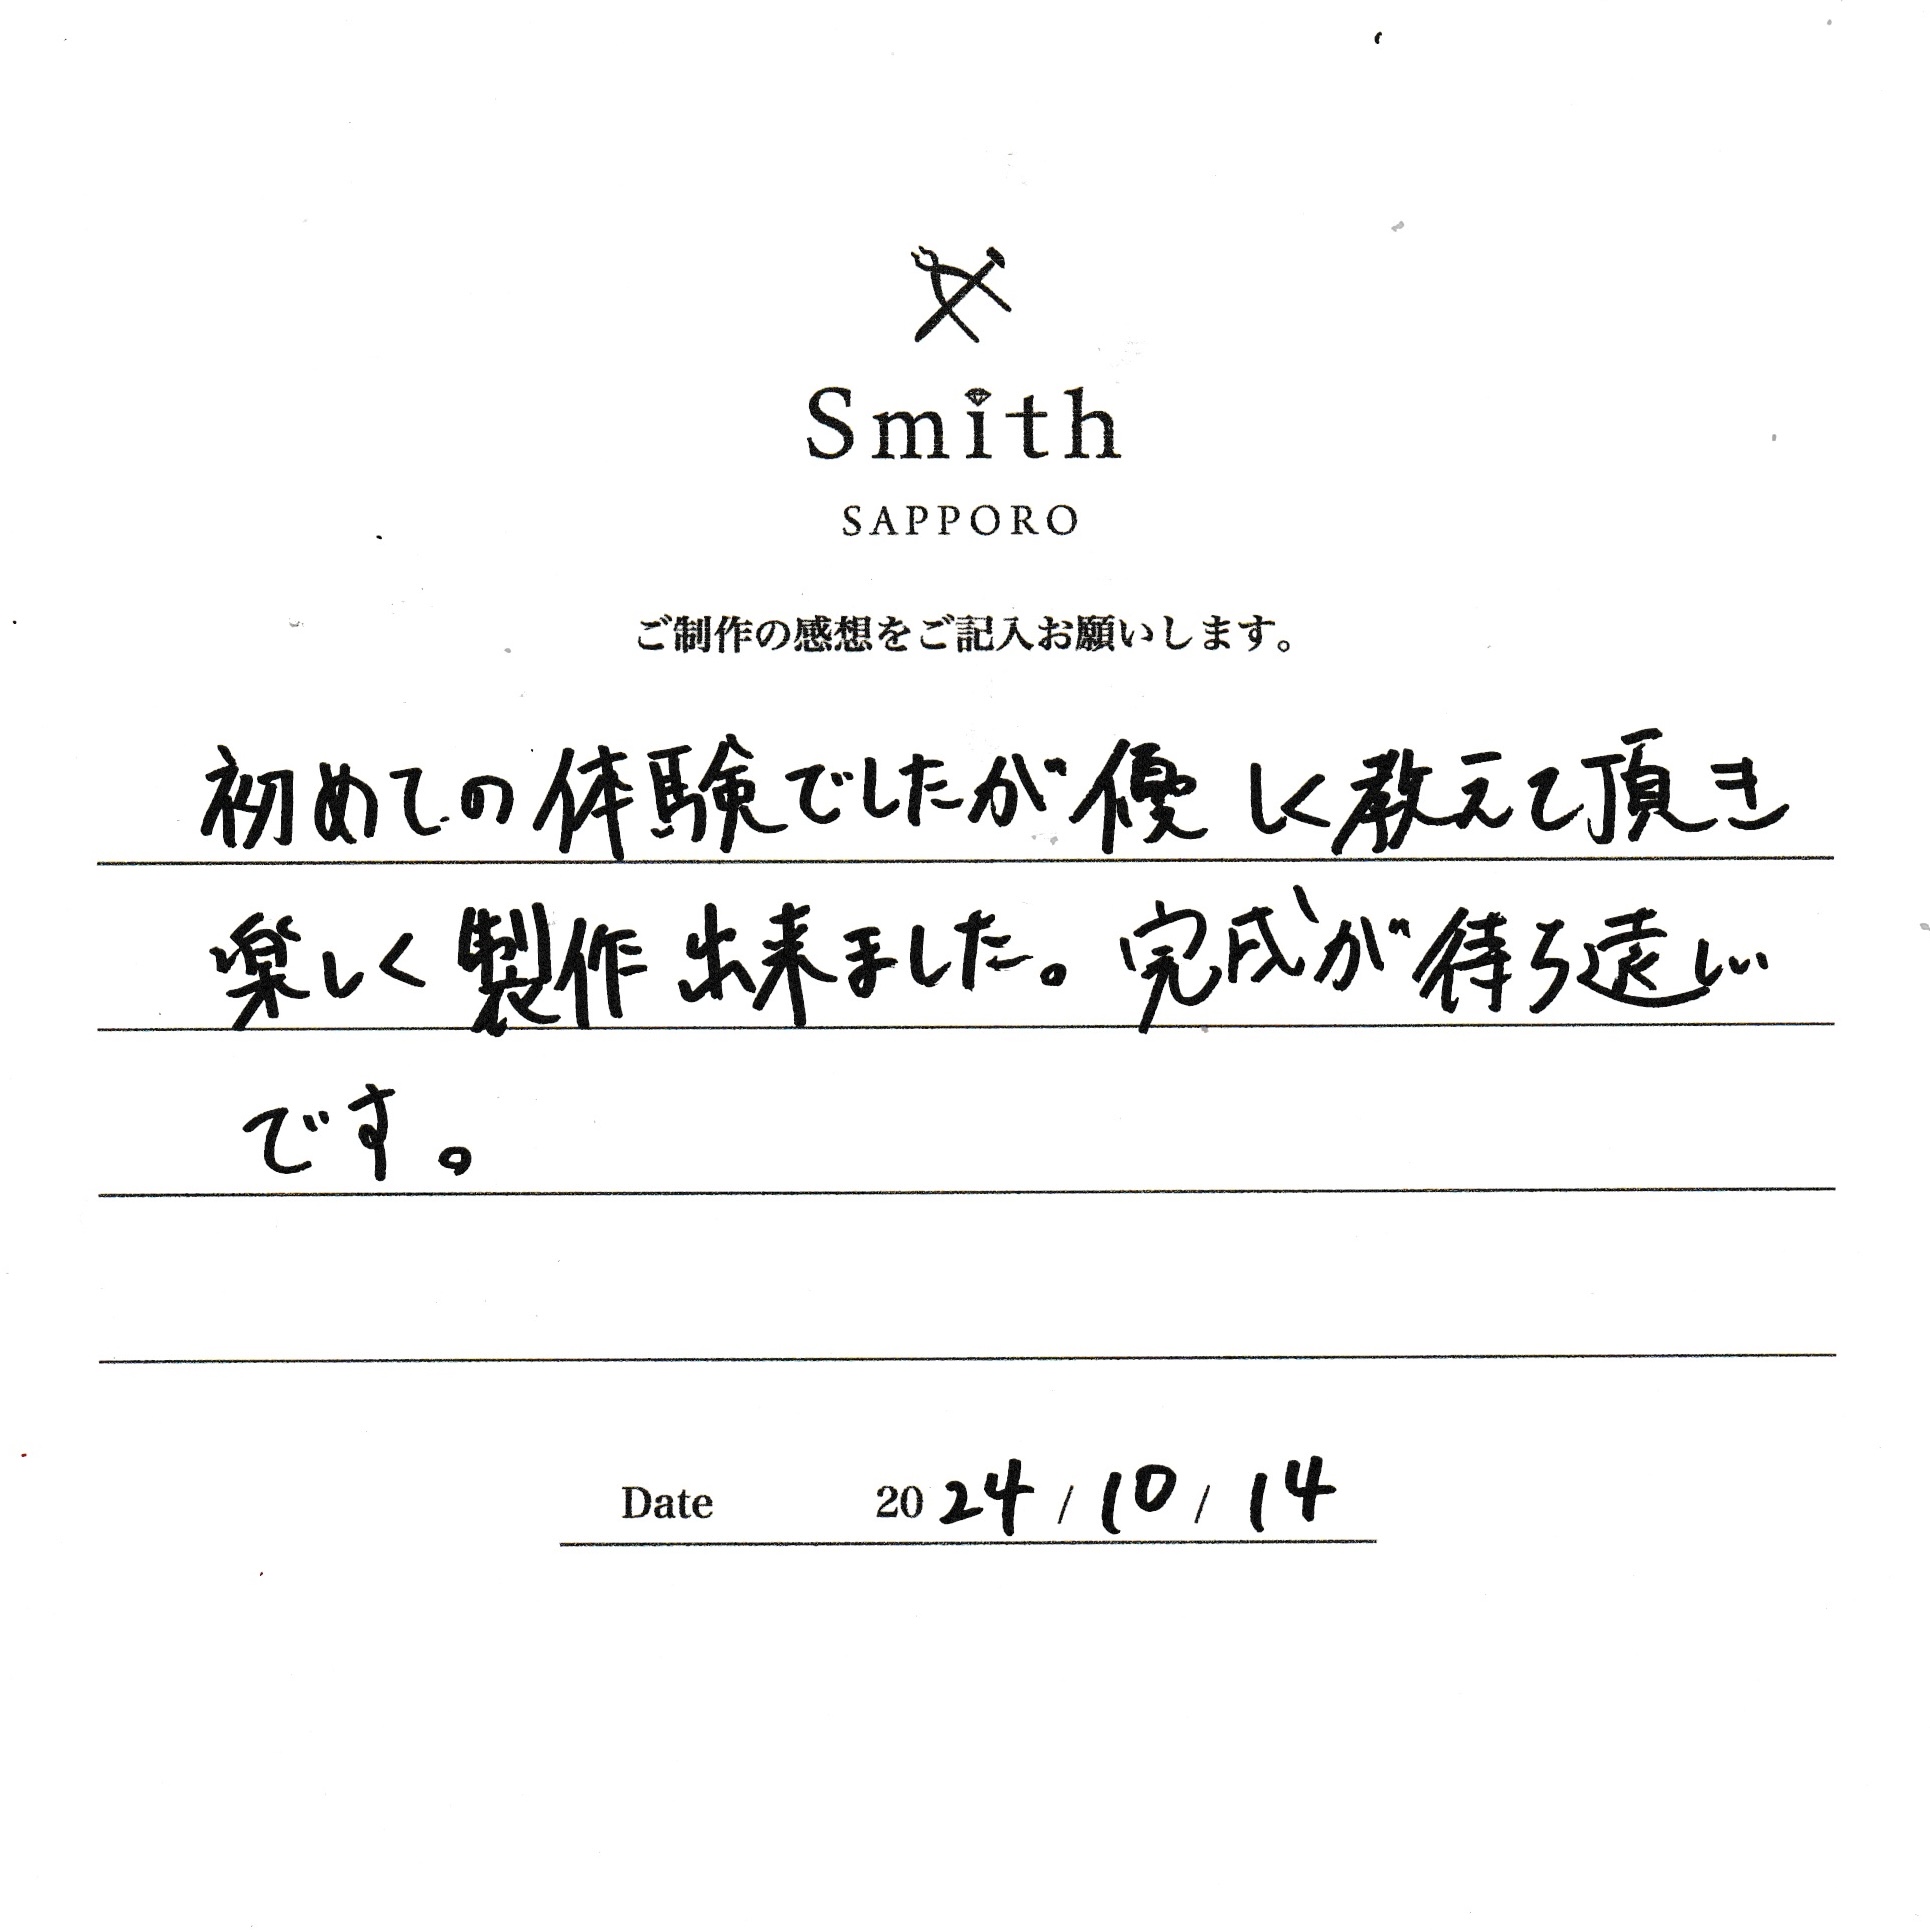 Smith
SAPPORO
ご制作の感想をご記入お願いします。
初めての体験でしたが優しく教えて頂き
楽しく製作出来ました。完成が待ち遠しい
です。
Date 2024/10/14